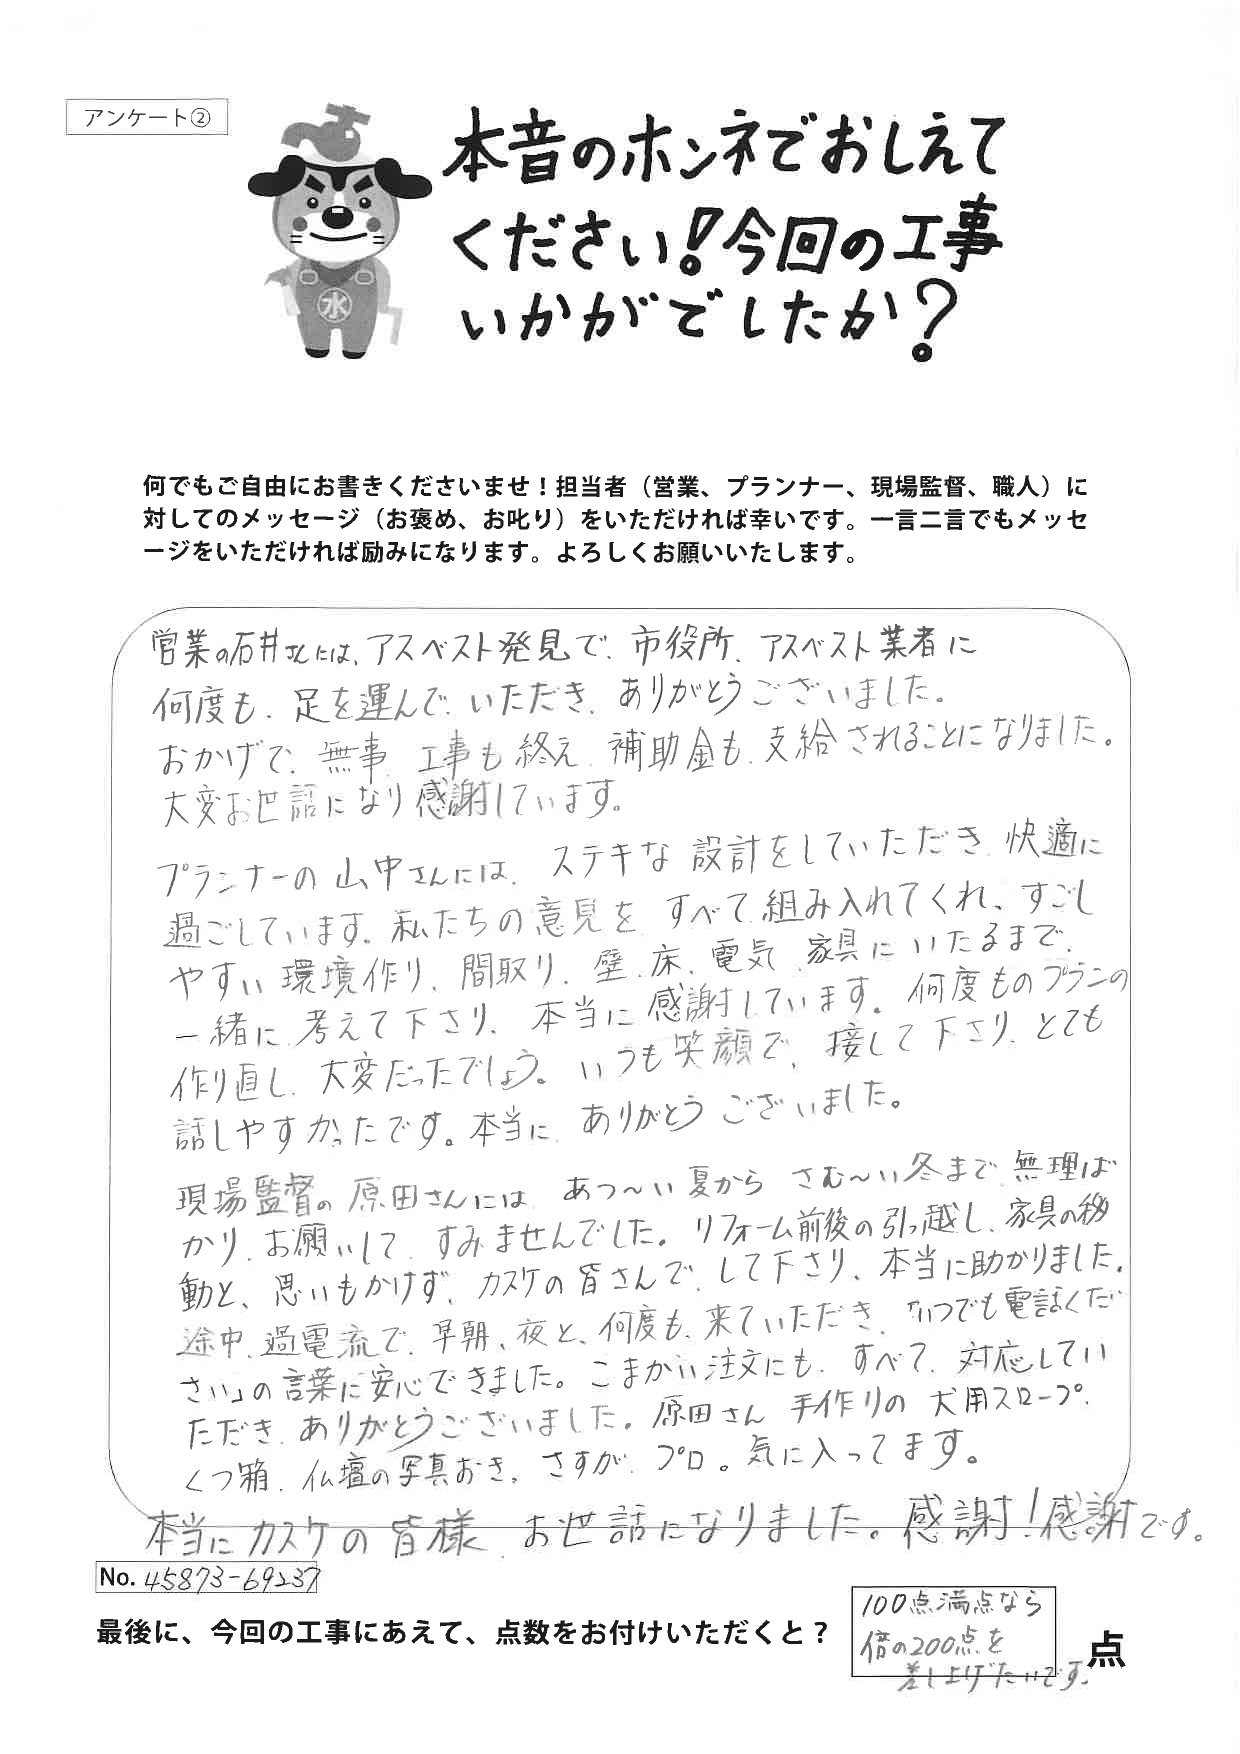 アンケート②
本音のホンネでおしえて
ください!今回の工事
いかがでしたか?
水
何でもご自由にお書きくださいませ!担当者(営業、プランナー、現場監督、職人)に
対してのメッセージ(お褒め、お叱り)をいただければ幸いです。一言二言でもメッセ
ージをいただければ励みになります。よろしくお願いいたします。
営業の石井さんには、アスベスト発見で、市役所、アスベスト業者に
何度も、足を運んで、いただき、ありがとうございました。
おかげで、無事、工事も終え、補助金も、支給されることになりました。
大変お世話になり感謝しています。
プランナーの山中さんには、ステキな設計をしていただき、快適に
過ごしています。私たちの意見を、すべて組み入れてくれ、すごし
やすい環境作り、間取り、壁、床、電気、家具にいたるまで、
一緒に考えて下さり、本当に感謝しています。何度ものプランの
作り直し、大変だったでしょう。いつも笑顔で、接して下さり、とても
話しやすかったです。本当に、ありがとうございました。
現場監督の原田さんには、あつ〜い夏から さむ〜い冬まで、無理ば
かり、お願いして、すみませんでした。リフォーム前後の引っ越し、家具の移
動と、思いもかけず、カスケの皆さんで、して下さり、本当に助かりました。
途中、過電流で、早朝、夜と、何度も、来ていただき、「いつでも電話くだ
さい」の言葉に安心できました。こまかい注文にも、すべて、対応してい
ただき、ありがとうございました。原田さん 手作りの 犬用スロープ、
くつ箱、仏壇の写真おき、さすが、プロ。気に入ってます。
本当にカスケの皆様、お世話になりました。感謝!感謝です。
No. 45873-69237
最後に、今回の工事にあえて、点数をお付けいただくと?
100点満点なら
倍の200点を
差し上げたいです。
点